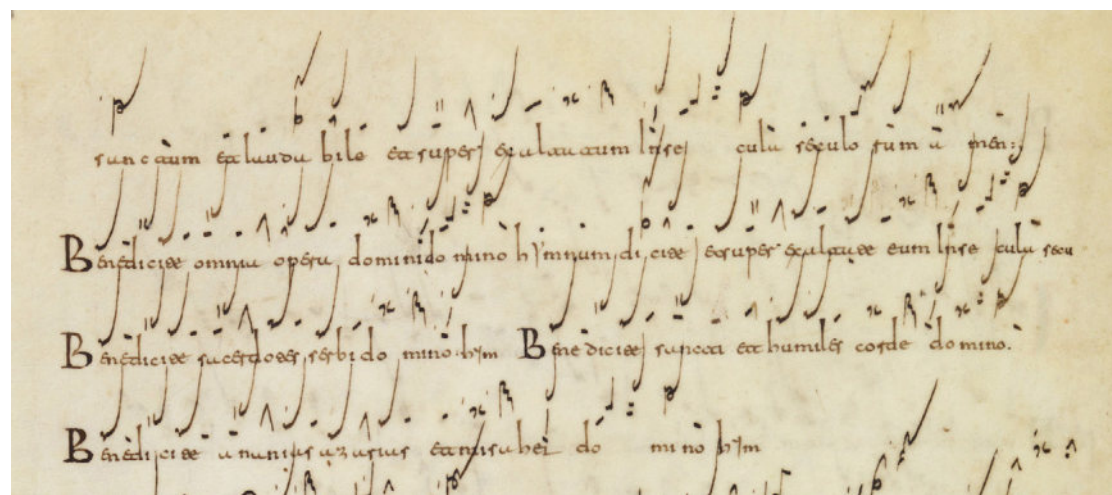 sanctum et laudabile et superexaltatum in se culu seculorum amen
Benedicite omnia opera domini domino hymnum dicite et superexaltate eum in se cula secu
Benedicite sacerdotes serbi domino hym Benedicite sancti et humiles corde domino.
Benedicite ananias azarias et misahel domino hym